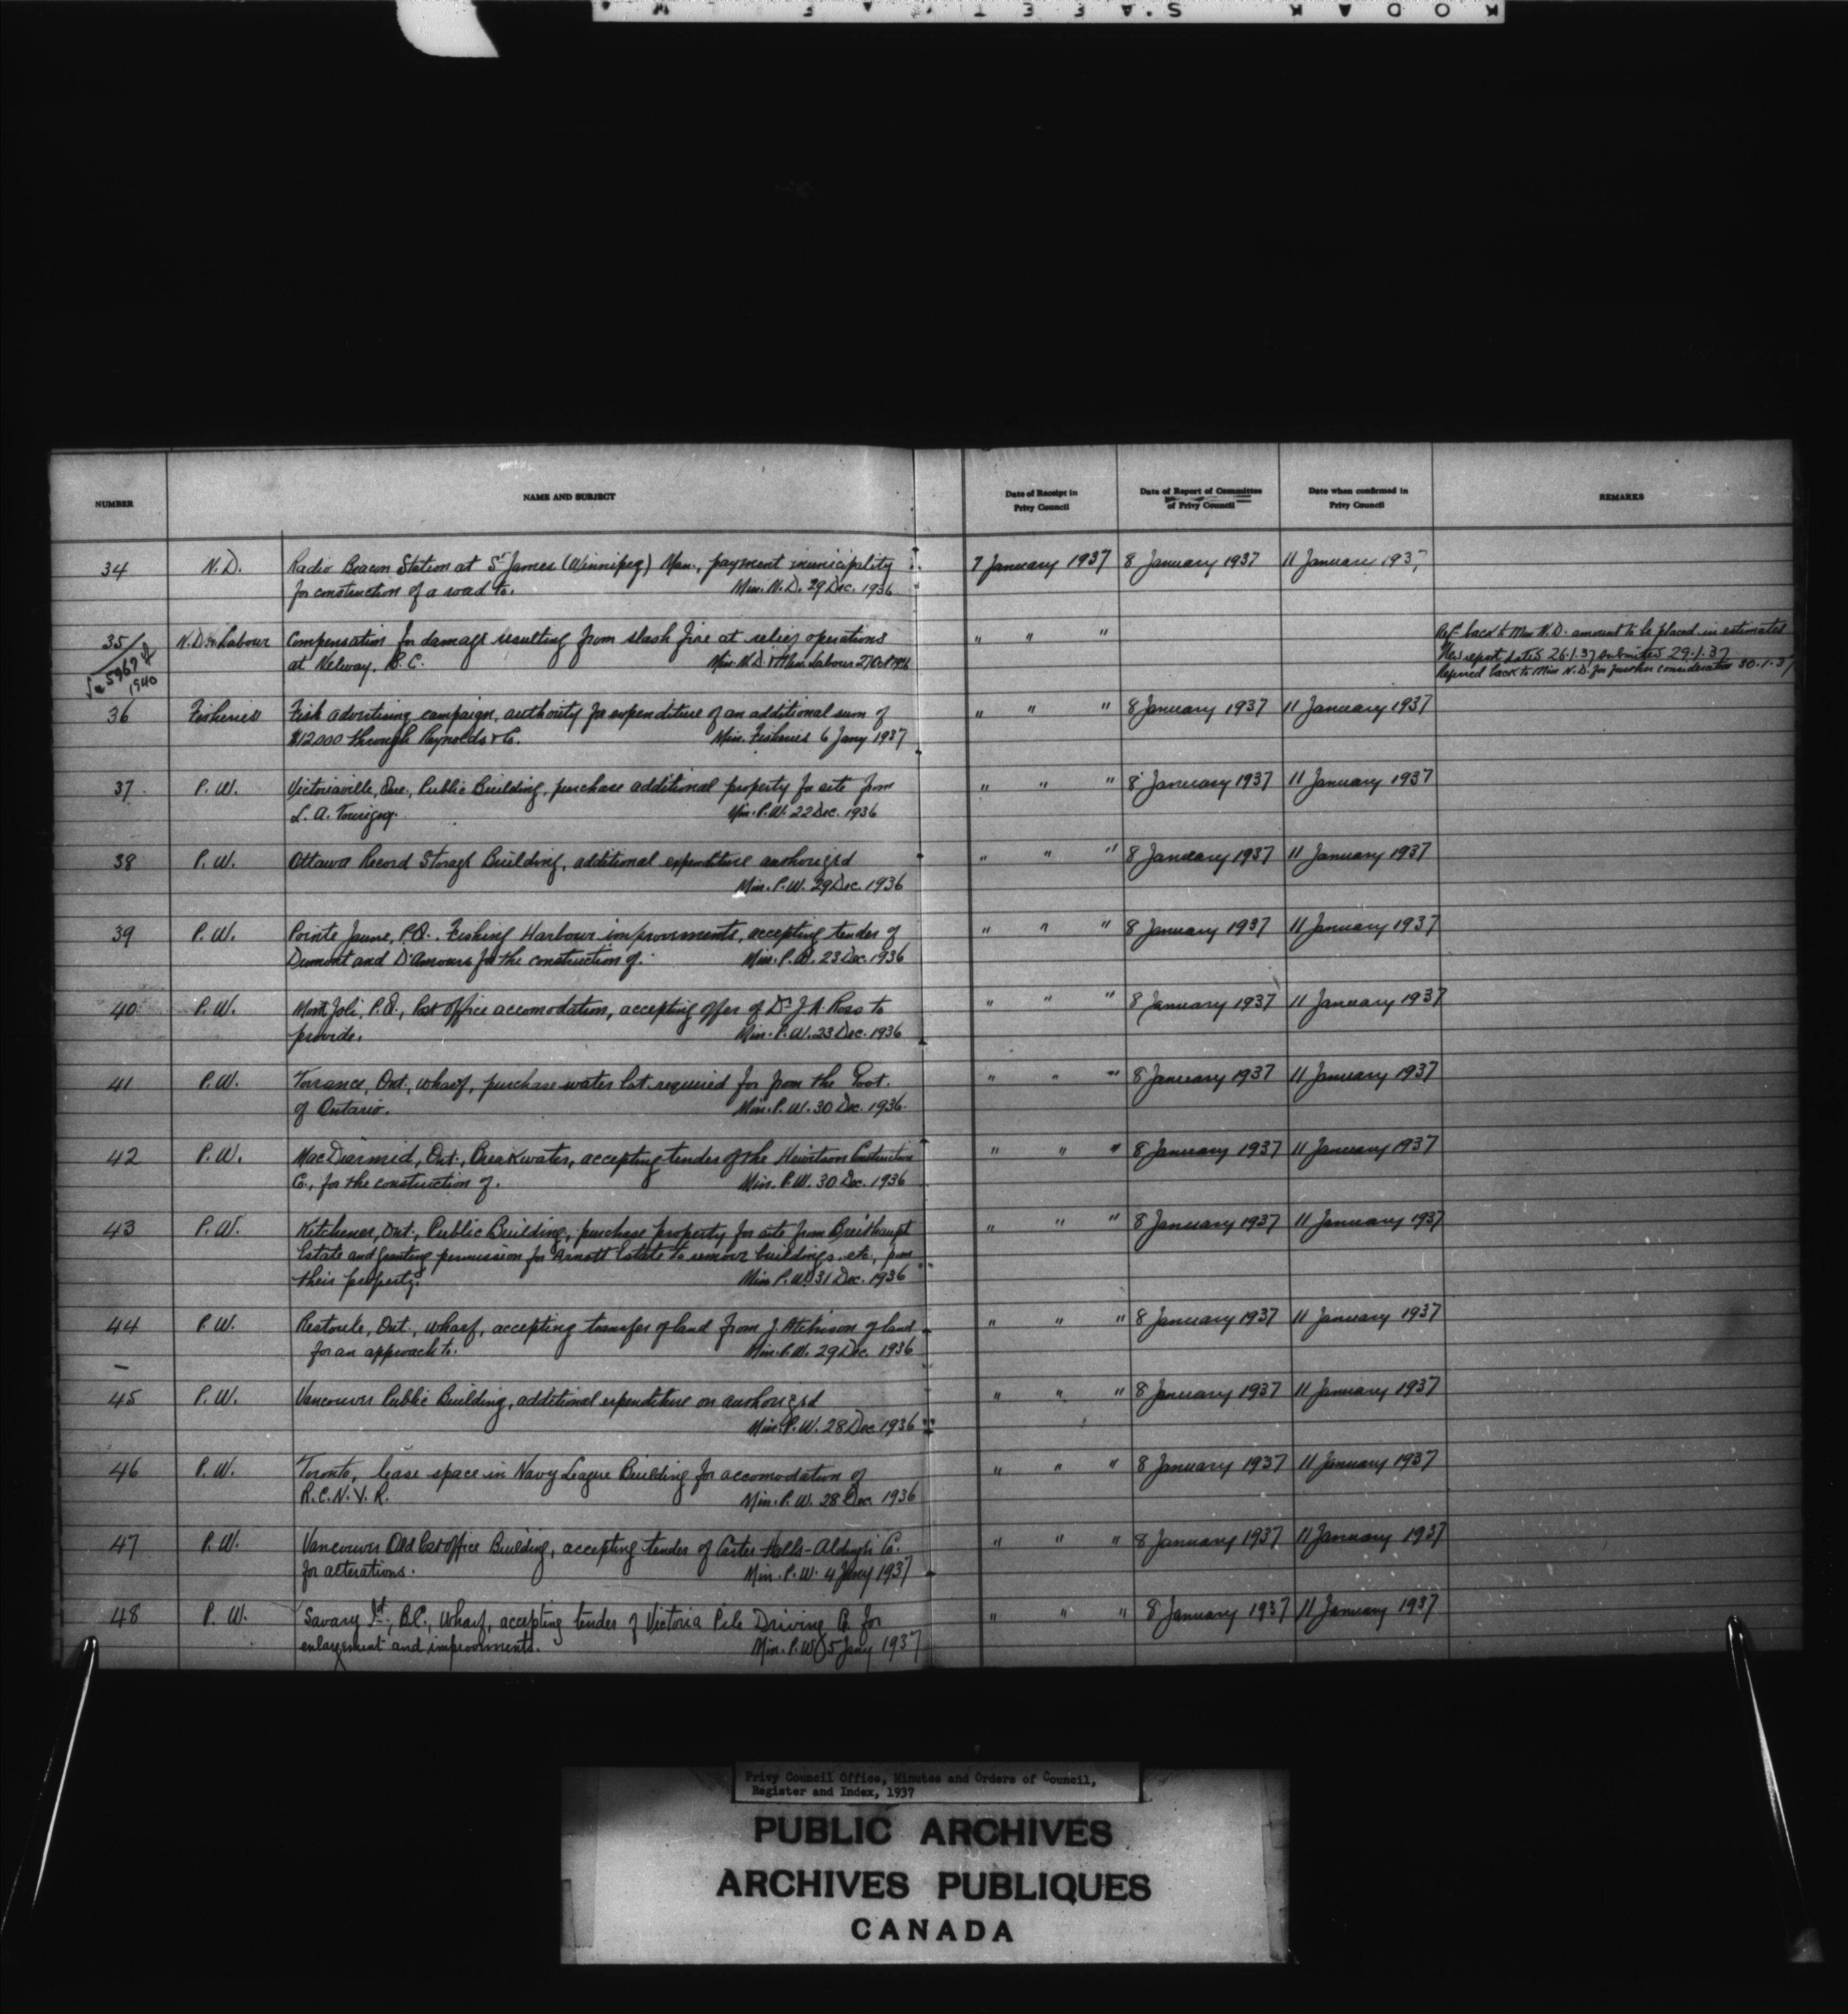 KODAK S.AFETY
NUMBER
NAME AND SUBJECT
Date of Receipt in
Privy Council
Date of Report of Committee
of Privy Council
Date when confirmed in
Privy Council
REMARKS
34 N.D. Radio Beacon Station at St James (Winnipeg) Man., payment municipality 7 January 1937 8 January 1937 11 January 1937
for construction of a road to. Min. N.D. 29 Dec. 1936
35 N.D. & Labour Compensation for damage resulting from slash fire at relief operations " " " Ref. back to Min N.D. amount to be placed in estimates
at Nelway, B.C. Min. N.D. & Min. Labour 27 Oct 1936 New report dated 26.1.37 submitted 29.1.37
5967 1940 Referred back to Min N.D. for further consideration 30.1.37
36 Fisheries Fish advertising campaign, authority for expenditure of an additional sum of " " " 8 January 1937 11 January 1937
$12000 through Reynolds & Co. Min. Fisheries 6 Jany 1937
37 P.W. Victoriaville, Que., Public Building, purchase additional property for site from " " " 8 January 1937 11 January 1937
L.A. Tourigny. Min. P.W. 22 Dec. 1936
38 P.W. Ottawa Record Storage Building, additional expenditure authorized " " " 8 January 1937 11 January 1937
Min. P.W. 29 Dec. 1936
39 P.W. Pointe Jaune, P.Q. Fishing Harbour improvments, accepting tender of " " " 8 January 1937 11 January 1937
Dumont and D'Amours for the construction of. Min. P.W. 23 Dec. 1936
40 P.W. Mont Joli, P.Q., Post Office accomodation, accepting offer of Dr J.A. Ross to " " " 8 January 1937 11 January 1937
provide. Min. P.W. 23 Dec. 1936
41 P.W. Torrance, Ont., wharf, purchase water lot required for from the Govt. " " " 8 January 1937 11 January 1937
of Ontario. Min. P.W. 30 Dec. 1936.
42 P.W. MacDiarmid, Ont., Breakwater, accepting tender of the Hewitson Construction " " " 8 January 1937 11 January 1937
Co., for the construction of. Min. P.W. 30 Dec. 1936
43 P.W. Kitchener, Ont., Public Building, purchase property for site from Breithaupt " " " 8 January 1937 11 January 1937
Estate and granting permission for Arnott Estate to remove buildings etc., from
their property. Min. P.W. 31 Dec. 1936
44 P.W. Restoule, Ont., wharf, accepting transfer of land from J. Atchison of land " " " 8 January 1937 11 January 1937
for an approach to. Min. P.W. 29 Dec. 1936
45 P.W. Vancouver Public Building, additional expenditure on authorized " " " 8 January 1937 11 January 1937
Min. P.W. 28 Dec 1936
46 P.W. Toronto, lease space in Navy League Building for accomodation of " " " 8 January 1937 11 January 1937
R.C.N.V.R. Min. P.W. 28 Dec. 1936
47 P.W. Vancouver Old Post office Building, accepting tender of Carter-Halls-Aldinger Co. " " " 8 January 1937 11 January 1937
for alterations. Min. P.W. 4 Jany 1937
48 P.W. Savary Id., B.C., Wharf, accepting tender of Victoria Pile Driving Co. for " " " 8 January 1937 11 January 1937
enlargement and improvments. Min. P.W. 5 Jany 1937
Privy Council Office, Minutes and Orders of Council,
Register and Index, 1937
PUBLIC ARCHIVES
ARCHIVES PUBLIQUES
CANADA